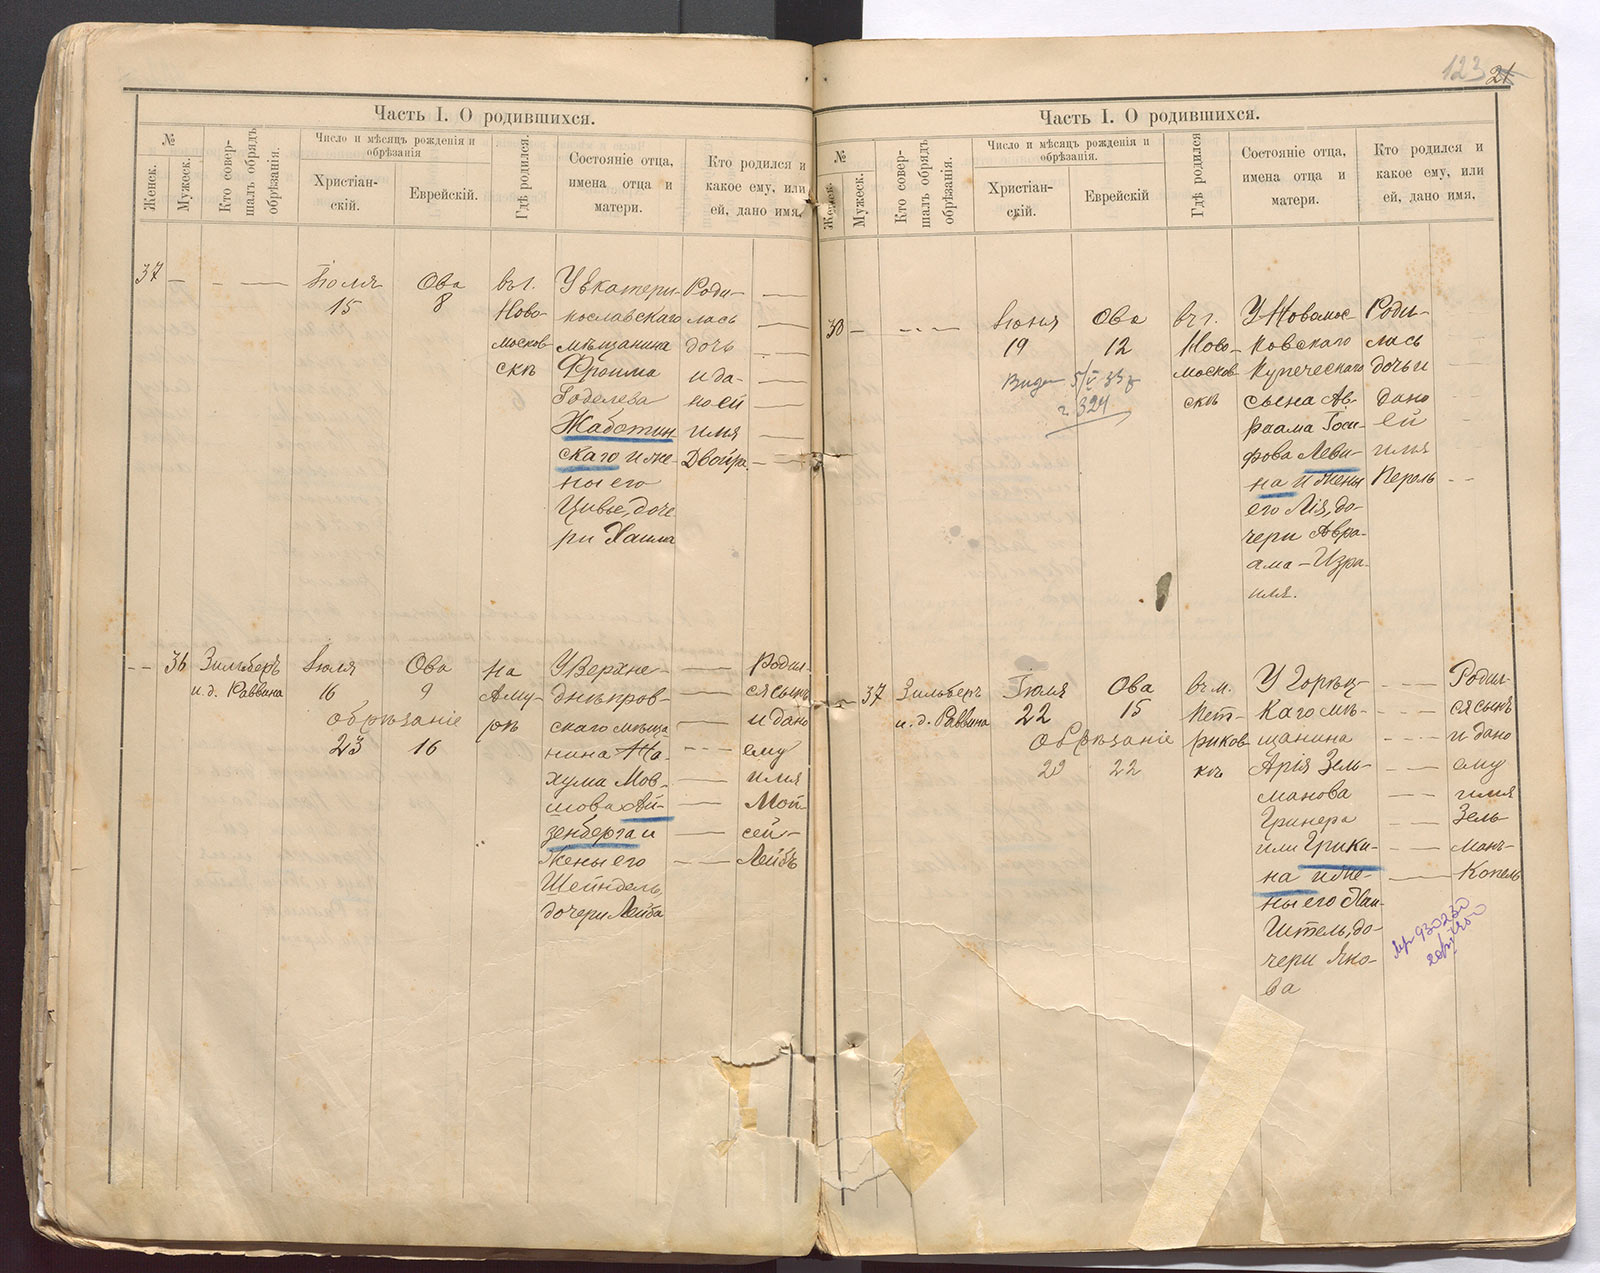 Часть I. О родившихся.
№
Женск.
Мужеск.
Кто совер-
шалъ обрядъ
обрѣзанія.
Число и мѣсяцъ рожденія и
обрѣзанія
Христіан-
скій.
Еврейскій.
Гдѣ родился.
Состояніе отца,
имена отца и
матери.
Кто родился и
какое ему, или
ей, дано имя.
37
Іюля
15
Ова
8
въ г.
Ново-
москов
скѣ
У Екатери-
нославскаго
мѣщанина
Фроима
Годелева
Жаботин
скаго и же-
ны его
Цивье, доче
ри Хаима
Роди-
лась
дочь
и да-
но ей
имя
Двойра
36
Зильберъ
и. д. Раввина
Іюля
16
Ова
9
обрѣзаніе
23
16
на
Аму-
рѣ
У Верхне-
днѣпров-
скаго мѣща
нина На-
хума Мов-
шова Ай-
зенберга и
жены его
Шейндель,
дочери Лейба
Родил-
ся сынъ
и дано
ему
имя
Мои
сей-
Лейбъ
123
21
Часть I. О родившихся.
№
Женск.
Мужеск.
Кто совер-
шалъ обрядъ
обрѣзанія.
Число и мѣсяцъ рожденія и
обрѣзанія.
Христіан-
скій.
Еврейскій
Гдѣ родился
Состояніе отца,
имена отца и
матери.
Кто родился и
какое ему, или
ей, дано имя.
38
Іюля
19
Ова
12
въ г.
Ново-
москов
скѣ
У Новомос-
ковскаго
купеческаго
сына Ав-
раама Іоси-
фова Леви-
на и жены
его Лія, до-
чери Авра-
ама-Изра-
иля.
Роди-
лась
дочь и
дано
ей
имя
Перль
324
37
Зильберъ
и. д. Раввина
Іюля
22
Ова
15
Обрѣзаніе
29
22
въ м.
Пет-
риков
кѣ
У Горѣц-
каго мѣ-
щанина
Арія Зель-
манова
Гринера
или Грики-
на и же-
ны его
Родил-
ся сынъ
и дано
ему
имя
Зель-
манъ-
Копель
дочери Яко-
ва
930230